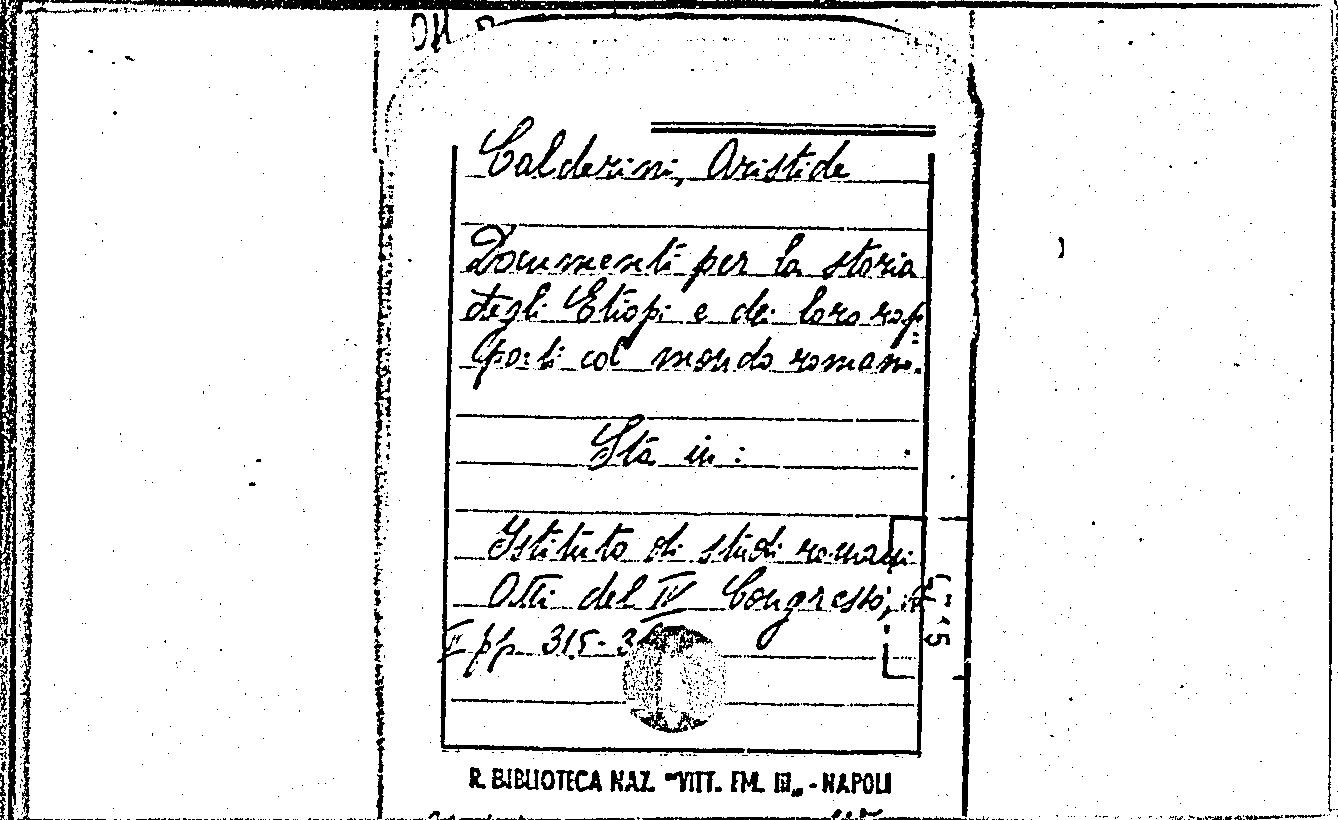 Calderini, Aristide
Documenti per la storia
degli Etiopi e dei loro rap=
porti col mondo romano.
Sta in:
Istituto di studi romani
Atti del IV Congresso,
I pp. 315-
R. BIBLIOTECA NAZ. "VITT. EM. III„ - NAPOLI